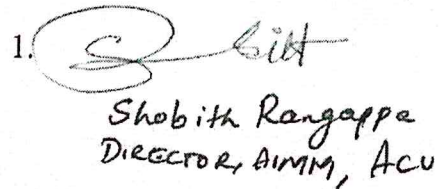 1.
Shobith Rangappa
DIRECTOR, AIMM, ACU